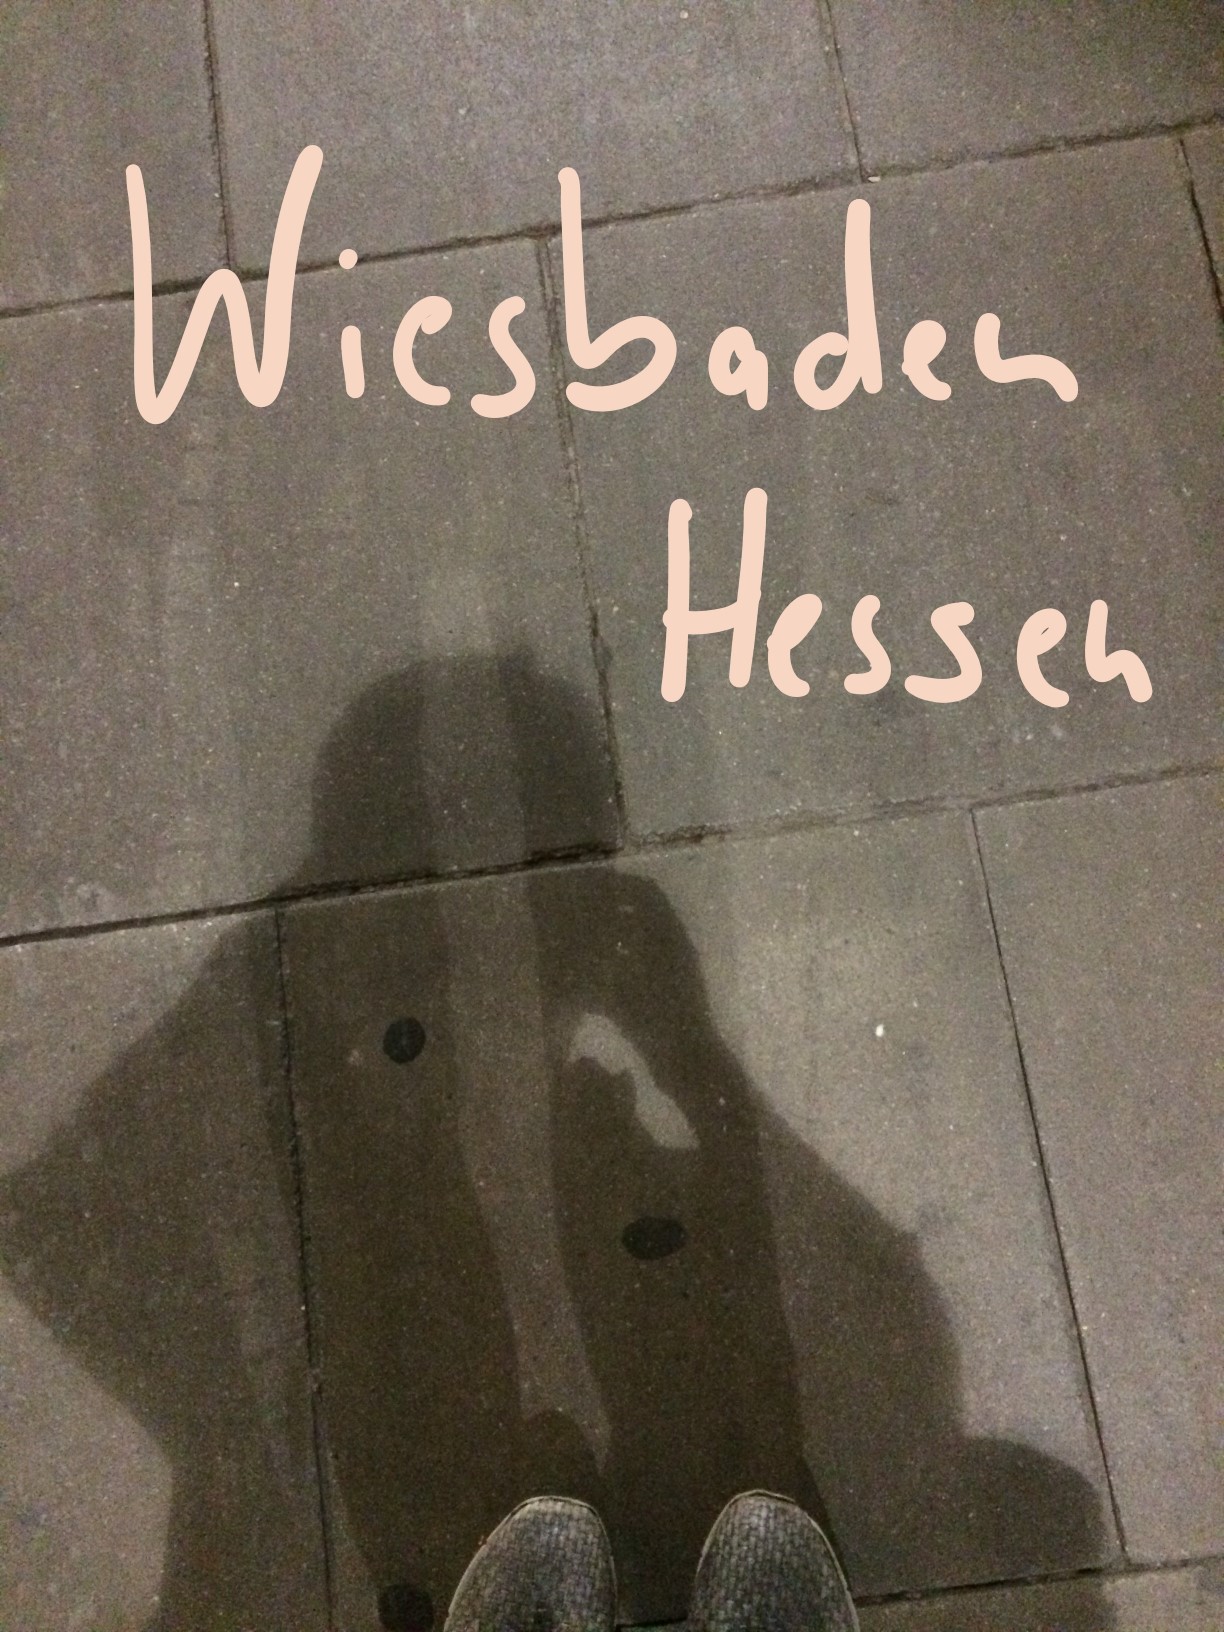 Wiesbaden
Hessen